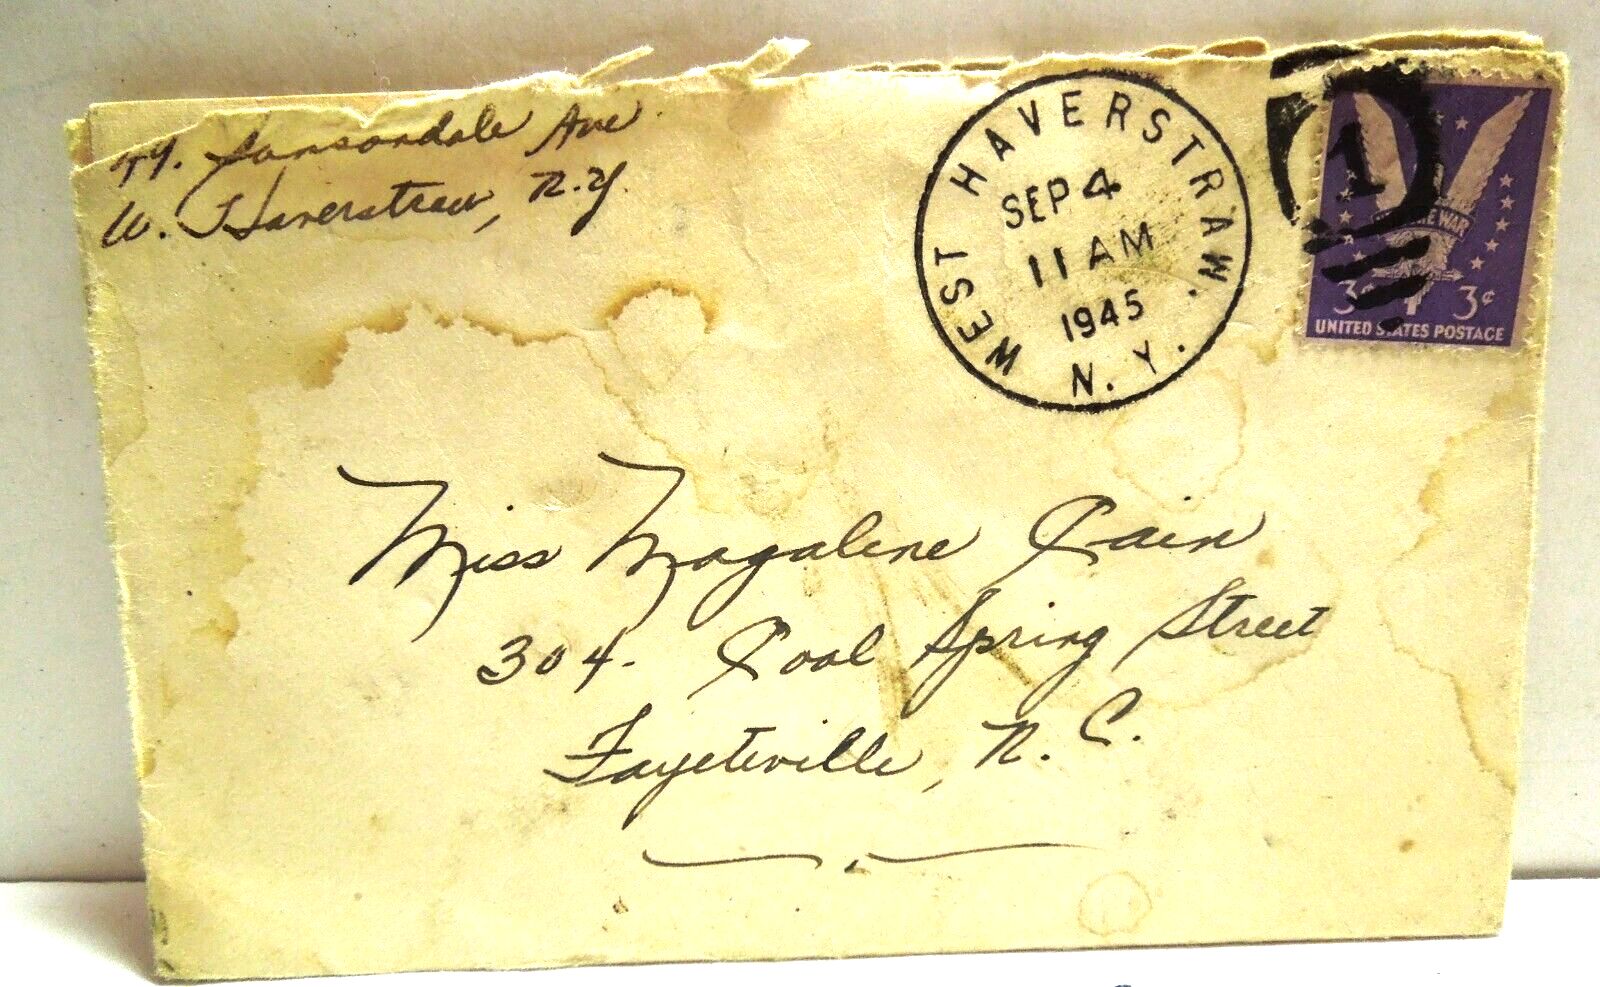 79. Samsondale Ave
W. Haverstraw, N.Y.
WEST HAVERSTRAW. N.Y.
SEP 4
11 AM
1945
1
THE WAR
3¢ 3¢
UNITED STATES POSTAGE
Miss Magalene Cain
304. Cool Spring Street
Fayetteville, N.C.